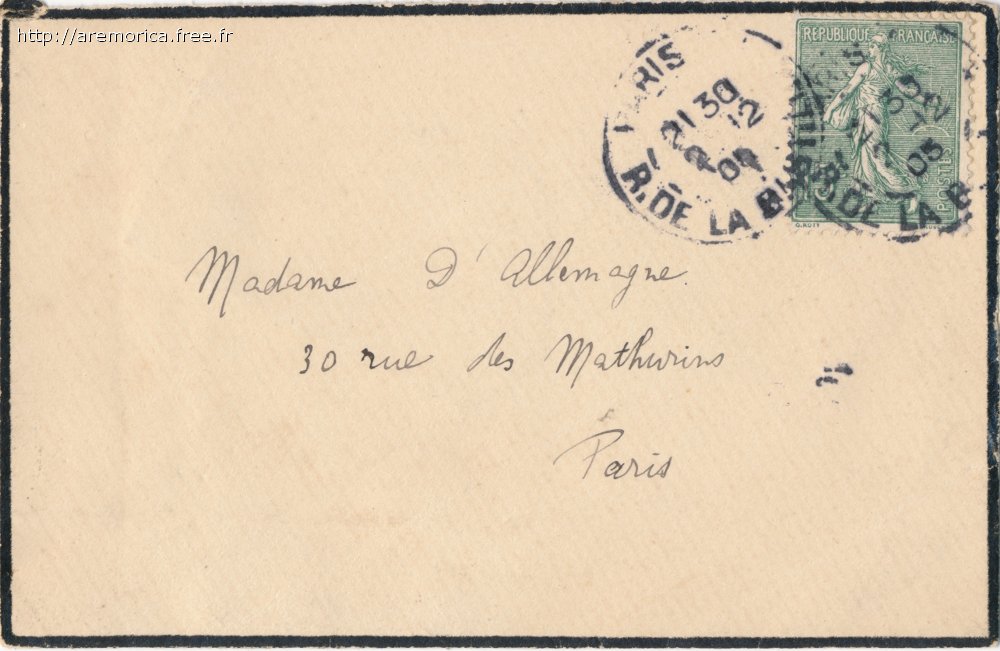 http://aremorica.free.fr
REPUBLIQUE FRANÇAISE
PARIS
21 30
12
05
R. DE LA B
POSTES
05
R. DE LA B
Madame D'Allemagne
30 rue des Mathurins
Paris